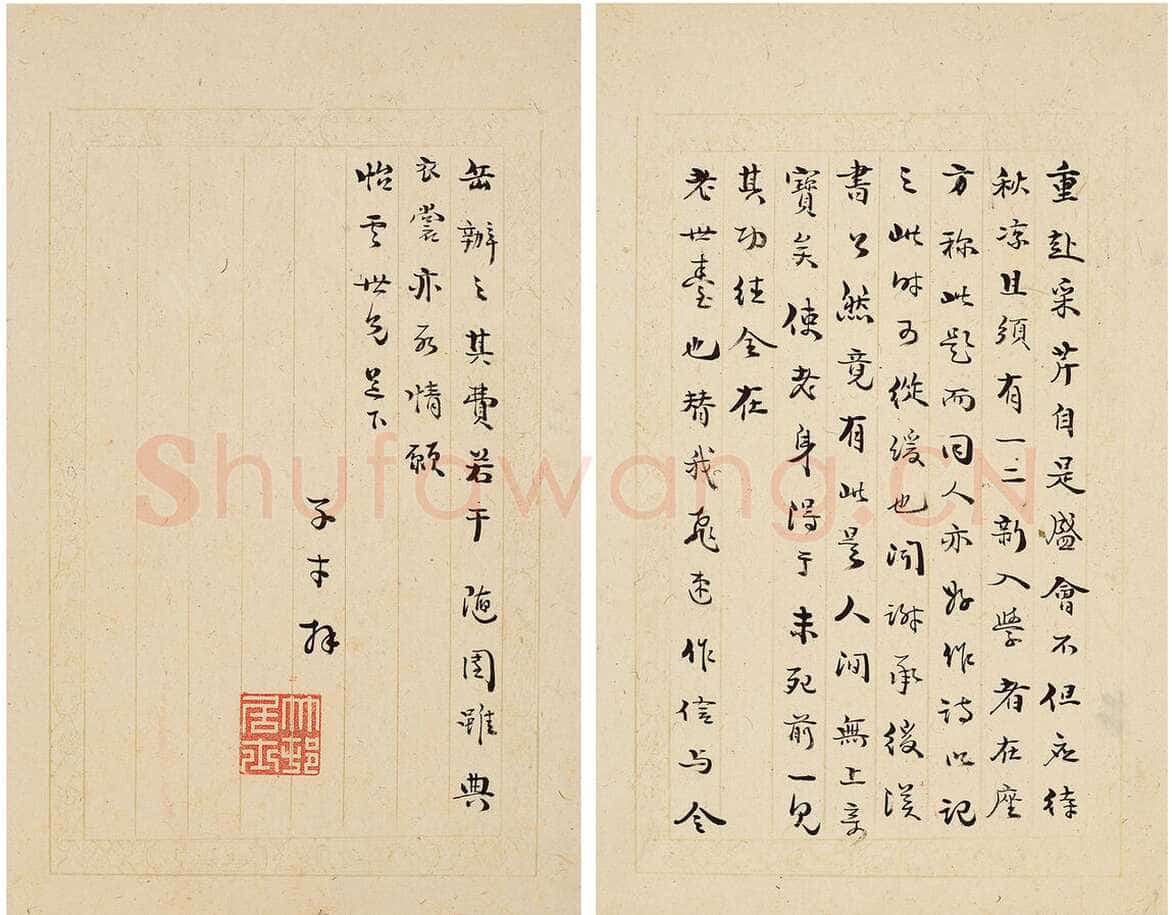 重赴采芹自是盛會不但宜待
秋涼且須有一二新入學者在座
方稱此題而同人亦好作詩以記
之此時可從緩也聞謝承後漢
書公然竟有此是人間無上奇
寶矣使老身得于未死前一見
其功德全在
老世臺也替我飛速作信与令
岳辦之其費若干隨園雖典
衣裳亦所情願
怡雲世兄足下
子才拜
Shufawang.CN